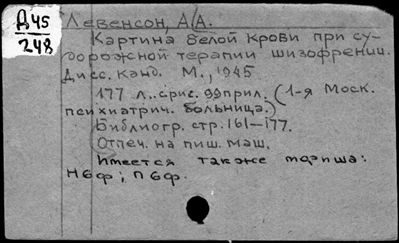 Д45
248
Левенсон, А.А.
Картина белой крови при су-
дорожной терапии шизофрении.
Дисс. канд. М., 1945
177 л. с рис. 99 прил. (1-я Моск.
психиатрич. больница.)
Библиогр. стр. 161—177.
Отпеч. на пиш. маш.
Имеется также
Н6ф; П6ф.